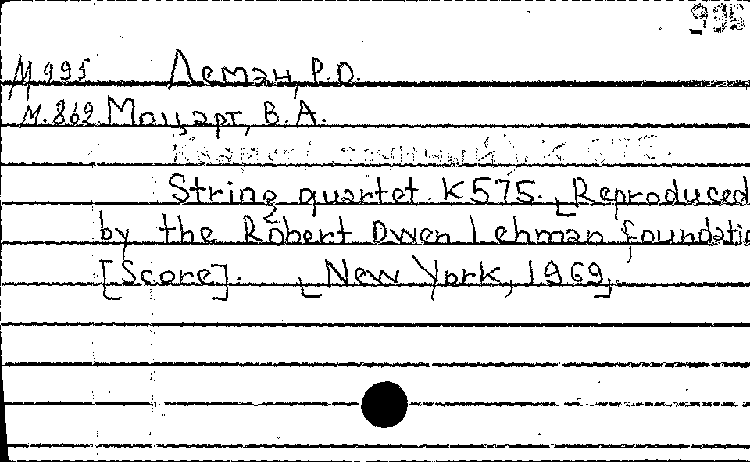 995
М 995 Леман, Р.О.
М. 862 Моцарт, В.А.
Квартет струнный, К 575.
String quartet K 575. [Reproduced
by the Robert Owen Lehman foundatio
[Score]. [New York, 1969].